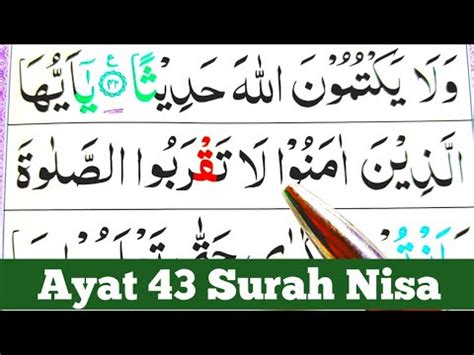 وَلَا يَكْتُمُوْنَ اللهَ حَدِيْثًا ۝٤٢ يٰۤاَيُّهَا
الَّذِيْنَ اٰمَنُوْا لَا تَقْرَبُوا الصَّلٰوةَ
Ayat 43 Surah Nisa